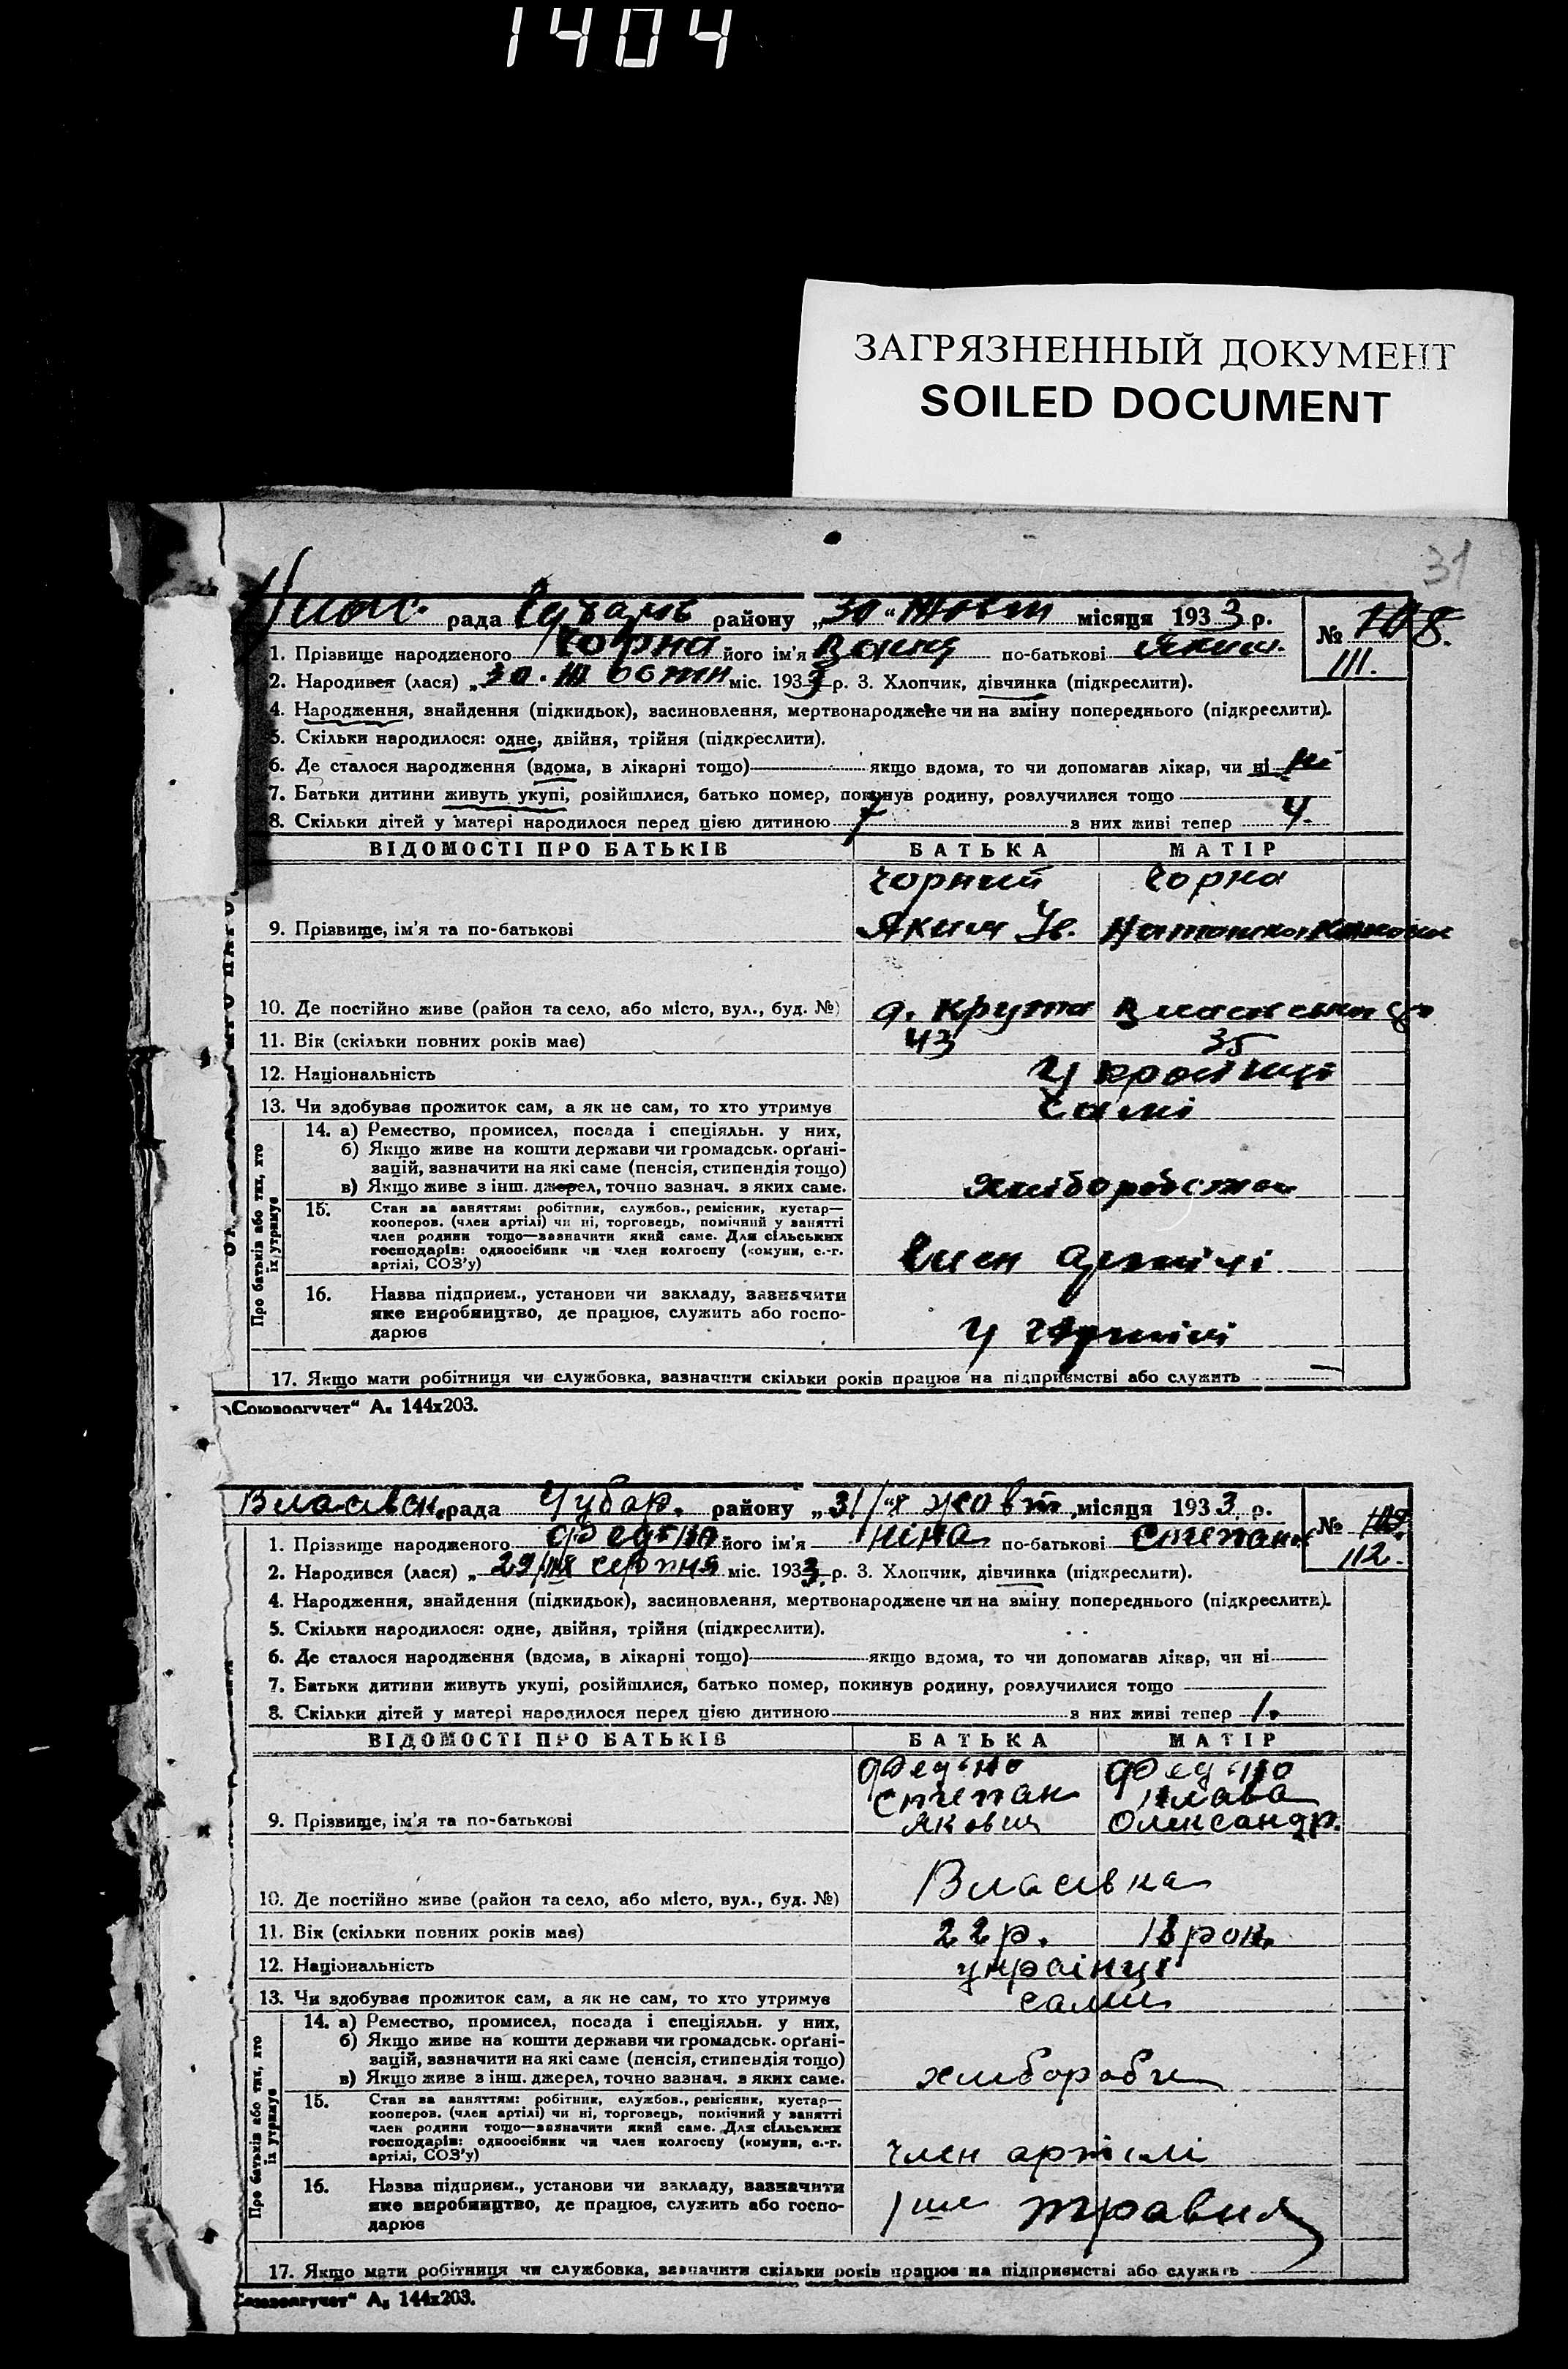 1404
ЗАГРЯЗНЕННЫЙ ДОКУМЕНТ
SOILED DOCUMENT
31
рада району „30“ Жовт місяця 1933 р.
№ 108.
111.
1. Прізвище народженого Чорна його ім'я по-батькові Яким.
2. Народився (лася) „30. міс. 1933 р. 3. Хлопчик, дівчинка (підкреслити).
4. Народження, знайдення (підкидьок), засиновлення, мертвонароджене чи на зміну попереднього (підкреслити).
5. Скільки народилося: одне, двійня, трійня (підкреслити).
6. Де сталося народження (вдома, в лікарні тощо) якщо вдома, то чи допомагав лікар, чи ні ні
7. Батьки дитини живуть укупі, розійшлися, батько помер, покинув родину, розлучилися тощо
8. Скільки дітей у матері народилося перед цією дитиною 7 з них живі тепер 4.
ВІДОМОСТІ ПРО БАТЬКІВ БАТЬКА МАТІР
Чорний Чорна
9. Прізвище, ім'я та по-батькові Яким Ів.
10. Де постійно живе (район та село, або місто, вул., буд. №)
11. Вік (скільки повних років має) 43 35
12. Національність Українці
13. Чи здобуває прожиток сам, а як не сам, то хто утримує Самі
Про батьків або тих, хто їх утримує
14. а) Ремество, промисел, посада і спеціяльн. у них,
б) Якщо живе на кошти держави чи громадськ. орґані-
зацій, зазначити на які саме (пенсія, стипендія тощо)
в) Якщо живе з інш. джерел, точно зазнач. з яких саме.
15. Стан за заняттям: робітник, службов., ремісник, кустар—
кооперов. (член артілі) чи ні, торговець, помічний у занятті
член родини тощо—зазначити який саме. Для сільських
господарів: одноосібник чи член колгоспу (комуни, с.-г.
артілі, СОЗ'у) Член Артілі
16. Назва підприєм., установи чи закладу, зазначити
яке виробництво, де працює, служить або госпо-
дарює У Артілі
17. Якщо мати робітниця чи службовка, зазначити скільки років працює на підприємстві або служить
„Союзоргучет“ А₅ 144х203.
Власівськ. рада Чубар. району „31/“X жовт місяця 1933 р.
№ 109.
112.
1. Прізвище народженого його ім'я Ніна по-батькові Степан.
2. Народився (лася) „29/VIII серпня міс. 1933 р. 3. Хлопчик, дівчинка (підкреслити).
4. Народження, знайдення (підкидьок), засиновлення, мертвонароджене чи на зміну попереднього (підкреслити).
5. Скільки народилося: одне, двійня, трійня (підкреслити).
6. Де сталося народження (вдома, в лікарні тощо) якщо вдома, то чи допомагав лікар, чи ні
7. Батьки дитини живуть укупі, розійшлися, батько помер, покинув родину, розлучилися тощо
8. Скільки дітей у матері народилося перед цією дитиною з них живі тепер 1.
ВІДОМОСТІ ПРО БАТЬКІВ БАТЬКА МАТІР
Степан
9. Прізвище, ім'я та по-батькові Якович Олександр.
10. Де постійно живе (район та село, або місто, вул., буд. №) Власівка
11. Вік (скільки повних років має) 22 р. 18 рок.
12. Національність українці
13. Чи здобуває прожиток сам, а як не сам, то хто утримує сами
Про батьків або тих, хто їх утримує
14. а) Ремество, промисел, посада і спеціяльн. у них,
б) Якщо живе на кошти держави чи громадськ. орґані-
зацій, зазначити на які саме (пенсія, стипендія тощо)
в) Якщо живе з інш. джерел, точно зазнач. з яких саме. хлибороби
15. Стан за заняттям: робітник, службов., ремісник, кустар—
кооперов. (член артілі) чи ні, торговець, помічний у занятті
член родини тощо—зазначити який саме. Для сільських
господарів: одноосібник чи член колгоспу (комуни, с.-г.
артілі, СОЗ'у) член артілі
16. Назва підприєм., установи чи закладу, зазначити
яке виробництво, де працює, служить або госпо-
дарює 1ше травня
17. Якщо мати робітниця чи службовка, зазначити скільки років працює на підприємстві або служить
А₅ 144х203.